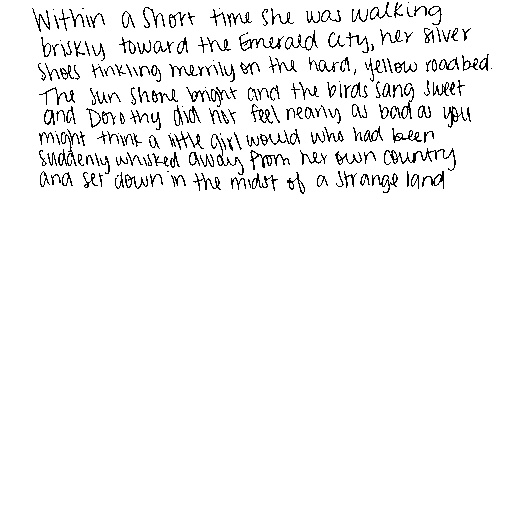 Within a short time she was walking
briskly toward the Emerald City, her silver
shoes tinkling merrily on the hard, yellow roadbed.
The sun shone bright and the birds sang sweet
and Dorothy did not feel nearly as bad as you
might think a little girl would who had been
suddenly whisked away from her own country
and set down in the midst of a strange land